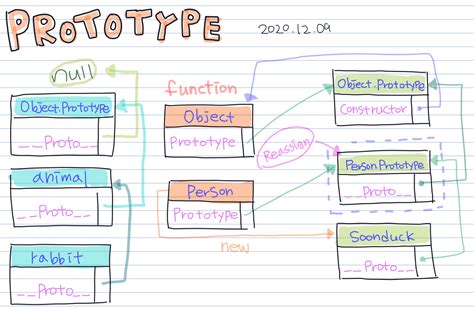 PROTOTYPE
2020.12.09
null
Object.Prototype
__Proto__
animal
__Proto__
rabbit
__Proto__
function
Object
Prototype
Reassign
Person
Prototype
new
Object.Prototype
Constructor
Person.Prototype
__Proto__
Soonduck
__Proto__